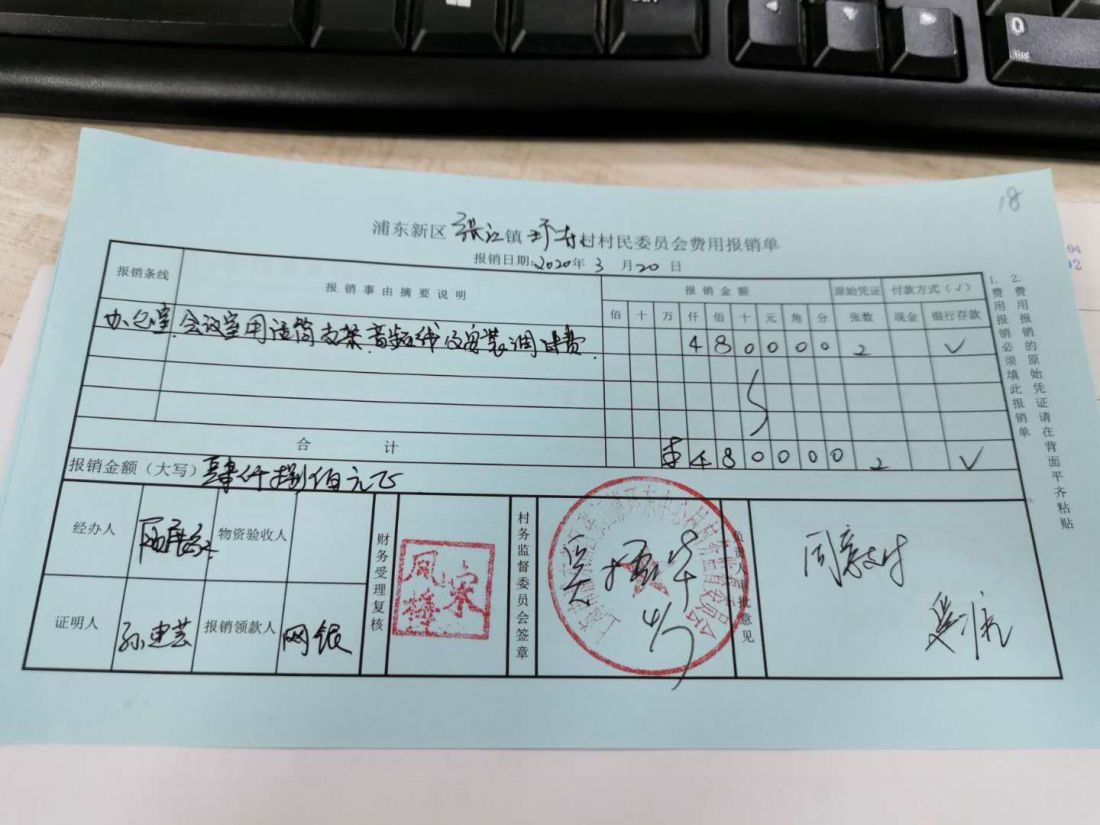 18
浦东新区 张江镇 环东村村民委员会费用报销单
报销日期:2020年 3 月 20 日
报销条线 报销事由摘要说明 报销金额 原始凭证 付款方式(√)
佰 十 万 仟 佰 十 元 角 分 张数 现金 银行存款
办公室 会议室用话筒支架、音频线及安装调试费 4 8 0 0 0 0 2 √
合 计 4 8 0 0 0 0 2 √
报销金额(大写) 肆仟捌佰元正
经办人 物资验收人 财务受理复核 村务监督委员会签章 批意见
同意支付
证明人 孙建芸 报销领款人 网银
宋凤梅
1.费用报销必须填此报销单
2.费用报销的原始凭证请在背面平齐粘贴